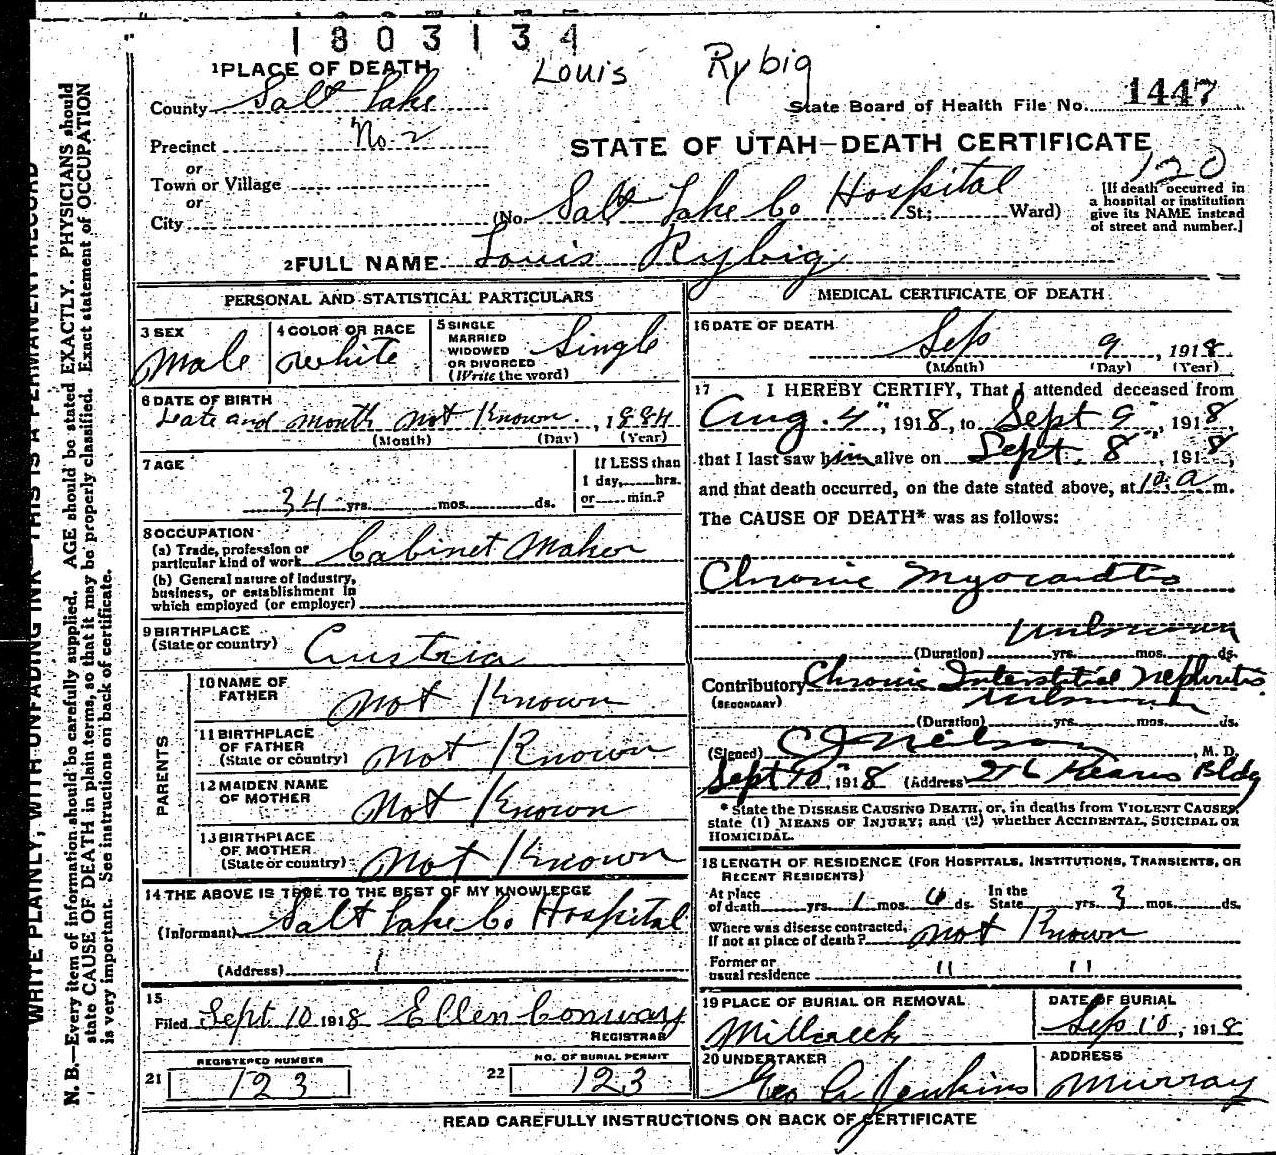 1803134
Louis Rybig
1 PLACE OF DEATH
County Salt Lake
State Board of Health File No. 1447
Precinct No 2
STATE OF UTAH—DEATH CERTIFICATE
120
or
Town or Village
or
City
(No. Salt Lake Co Hospital St; Ward)
[If death occurred in
a hospital or institution
give its NAME instead
of street and number.]
2 FULL NAME Louis Rybig
PERSONAL AND STATISTICAL PARTICULARS
3 SEX
Male
4 COLOR OR RACE
White
5 SINGLE
MARRIED
WIDOWED
OR DIVORCED
(Write the word)
Single
6 DATE OF BIRTH
Date and month not Known, 1884
(Month) (Day) (Year)
7 AGE
34 yrs. mos. ds.
If LESS than
1 day, hrs.
or min.?
8 OCCUPATION
(a) Trade, profession or
particular kind of work Cabinet Maker
(b) General nature of Industry,
business, or establishment in
which employed (or employer)
9 BIRTHPLACE
(State or country) Austria
PARENTS
10 NAME OF
FATHER Not Known
11 BIRTHPLACE
OF FATHER
(State or country) Not Known
12 MAIDEN NAME
OF MOTHER Not Known
13 BIRTHPLACE
OF MOTHER
(State or country) Not Known
14 THE ABOVE IS TRUE TO THE BEST OF MY KNOWLEDGE
(Informant) Salt Lake Co. Hospital
(Address)
15
Filed Sept 10 1918 Ellen Conway
REGISTRAR
REGISTERED NUMBER
21 123
NO. OF BURIAL PERMIT
22 123
MEDICAL CERTIFICATE OF DEATH
16 DATE OF DEATH
Sep 9, 1918
(Month) (Day) (Year)
17 I HEREBY CERTIFY, That I attended deceased from
Aug. 4", 1918, to Sept 9", 1918,
that I last saw him alive on Sept. 8", 1918,
and that death occurred, on the date stated above, at a m.
The CAUSE OF DEATH* was as follows:
Chronic Myocardtis
unknown
(Duration) yrs. mos. ds.
Contributory Chronic Interstitial Nephritis
(SECONDARY) unknown
(Duration) yrs. mos. ds.
(Signed) C J Neilson, M. D.
Sept 10", 1918 (Address 216 Kearns Bldg
* State the DISEASE CAUSING DEATH, or, in deaths from VIOLENT CAUSES,
state (1) MEANS OF INJURY; and (2) whether ACCIDENTAL, SUICIDAL OR
HOMICIDAL.
18 LENGTH OF RESIDENCE (FOR HOSPITALS, INSTITUTIONS, TRANSIENTS, OR
RECENT RESIDENTS)
At place
of death yrs. 1 mos. 6 ds.
In the
State yrs. 3 mos. ds.
Where was disease contracted,
If not at place of death? Not Known
Former or
usual residence " "
19 PLACE OF BURIAL OR REMOVAL
Millcreek
DATE OF BURIAL
Sep 10, 1918
20 UNDERTAKER
Geo A Jenkins
ADDRESS
Murray
READ CAREFULLY INSTRUCTIONS ON BACK OF CERTIFICATE
WRITE PLAINLY, WITH UNFADING INK—THIS IS A PERMANENT RECORD
N. B.—Every item of information should be carefully supplied. AGE should be stated EXACTLY. PHYSICIANS should
state CAUSE OF DEATH in plain terms, so that it may be properly classified. Exact statement of OCCUPATION
is very important. See instructions on back of certificate.